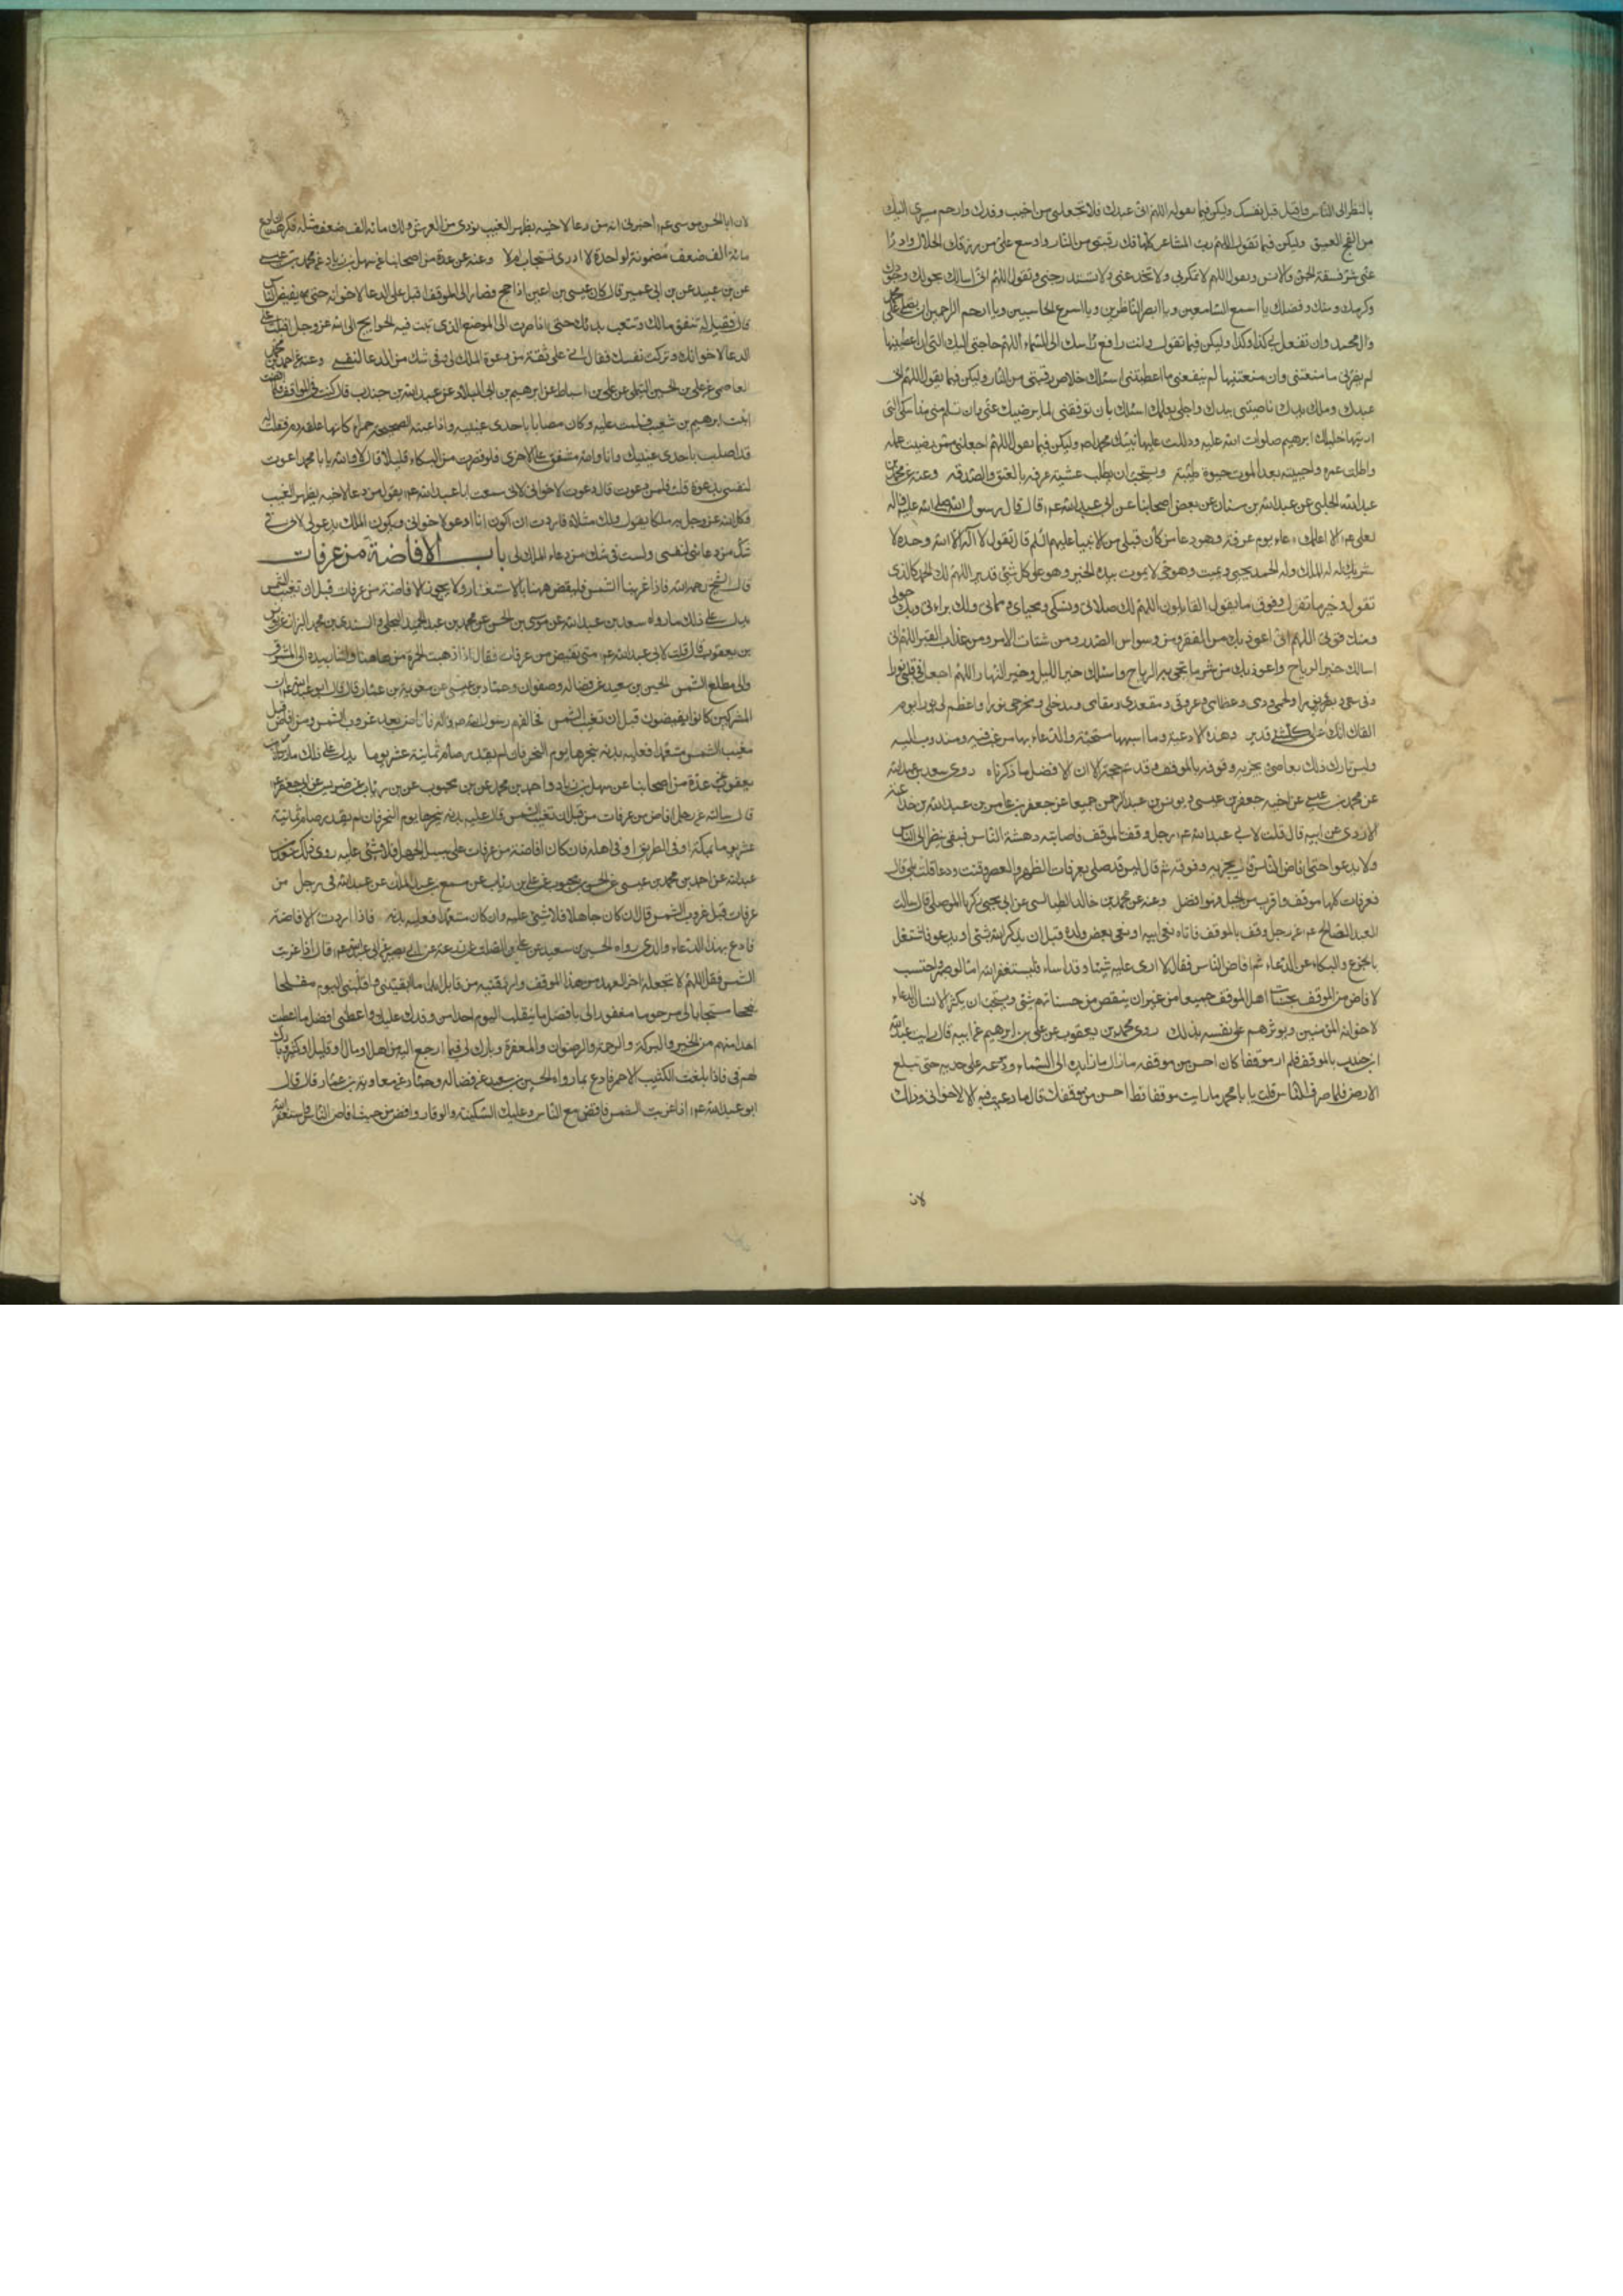 بالنظر الى الناس واقبل قبل نفسك وليكن فيما تقوله اللهم انى عبدك فلا تجعلنى من اخيب وفدك وارحم مسيرى اليك
من الفج العميق وليكن فيما تقول اللهم رب المشاعر كلها فك رقبتى من النار واوسع على من رزقك الحلال وادرأ
عنى شر فسقة الجن والانس وتقول اللهم لا تمكر بى ولا تخدعنى ولا تستدرجنى وتقول اللهم انى اسالك بحولك وجودك
وكرمك ومنك وفضلك يا اسمع السامعين ويا ابصر الناظرين ويا اسرع الحاسبين ويا ارحم الراحمين ان تصلى على محمد
وال محمد وان تفعل بى كذا وكذا وليكن فيما تقول وانت رافع راسك الى السماء اللهم حاجتى اليك التى ان اعطيتنيها
لم يضرنى ما منعتنى وان منعتنيها لم ينفعنى ما اعطيتنى اسئلك خلاص رقبتى من النار وليكن فيما تقول اللهم انى
عبدك وملك يدك ناصيتى بيدك واجلى بعلمك اسئلك بان توفقنى لما يرضيك عنى وان تسلم منى مناسكى التى
اريتها خليلك ابرهيم صلوات الله عليه ودللت عليها نبيك محمد ص وليكن فيما تقول اللهم اجعلنى ممن رضيت عمله
واطلت عمره واحييته بعد الموت حيوة طيبة ويستحب ان يطلب عشية عرفه بالعتق والصدقه وعنه عن محمد بن
عبد الله الحلبى عن عبد الله بن سنان عن بعض اصحابنا عن ابى عبد الله ع قال قال رسول الله صلى الله عليه واله
لعلى ع الا اعلمك دعاء يوم عرفة وهو دعا من كان قبلى من الانبيا عليهم السلم قال تقول لا اله الا الله وحده لا
شريك له له الملك وله الحمد يحيى ويميت وهو حى لا يموت بيده الخير وهو على كل شئ قدير اللهم لك الحمد كالذى
تقول وخير ما تقول وفوق ما يقول القائلون اللهم لك صلاتى ونسكى ومحياى ومماتى ولك براءتى وبك حولى
ومنك قوتى اللهم انى اعوذ بك من الفقر ومن وسواس الصدر ومن شتات الامر ومن عذاب القبر اللهم انى
اسالك خير الرياح واعوذ بك من شر ما تجئ به الرياح واسئلك خير الليل وخير النهار اللهم اجعل فى قلبى نورا
وفى سمعى وبصرى نورا ولحمى ودمى وعظامى وعروقى ومقعدى ومقامى ومدخلى ومخرجى نورا واعظم لى نورا يوم
القاك انك على كل شئ قدير وهذه الادعية وما اشبهها مستحبة والدعاء بها مرغب فيه ومندوب اليه
وليس تارك ذلك بعاصى يجزيه وقوفه بالموقف وقد تم حجه الا ان الافضل ما ذكرناه روى سعد بن عبد الله
عن محمد بن عيسى عن اخيه جعفر بن عيسى ويونس بن عبد الرحمن جميعا عن جعفر بن عامر بن عبد الله بن جذاعة
الازدى عن ابيه قال قلت لابى عبد الله ع رجل وقف بالموقف فاصابته دهشة الناس فبقى ينظر الى الناس
ولا يدعوا حتى افاض الناس قال يجزيه وقوفه ثم قال اليس قد صلى بعرفات الظهر والعصر وقنت ودعا قلت بلى قال
فعرفات كلها موقف وما قرب من الجبل فهو افضل وعنه عن محمد بن خالد الطيالسى عن ابى يحيى زكريا الموصلى قال سالت
العبد الصالح ع عن رجل وقف بالموقف فاتاه نعى ابيه او نعى بعض ولده قبل ان يذكر الله شئ او يدعو فاشتغل
بالجزع والبكاء عن الدعاء ثم افاض الناس فقال لا ارى عليه شيئا وقد اساء فليستغفر الله اما لو صبر واحتسب
لافاض من الموقف بحسنات اهل الموقف جميعا من غير ان ينقص من حسناتهم شئ ويستحب ان يكثر الانسان الدعاء
لاخوانه المؤمنين ويوثرهم على نفسه بذلك روى محمد بن يعقوب عن على بن ابرهيم عن ابيه قال رايت عبد الله
بن جندب بالموقف فلم ار موقفا كان احسن من موقفه ما زال مادا يده الى السماء ودموعه على خديه حتى تبلغ
الارض فلما صرف الناس قلت يا با محمد ما رايت موقفا قط احسن من موقفك قال ما دعوت فيه الا لاخوانى وذلك
لان
لان ابا الحسن موسى ع اخبرنى انه من دعا لاخيه بظهر الغيب نودى من العرش ولك مائه الف ضعف مثله فكرهت ان ادع
مائة الف ضعف مضمونة لواحدة لا ادرى تستجاب ام لا وعنه عن عدة من اصحابنا عن سهل بن زياد عن محمد بن عيسى
عن بن عبيد عن بن ابى عمير قال كان عيسى بن اعين اذا حج فصار الى الموقف اقبل على الدعا لاخوانه حتى يفيض الناس
قال فقيل له تنفق مالك وتتعب بدنك حتى اذا صرت الى الموضع الذى تبث فيه الحوايج الى الله عز وجل اقبلت على
الدعا لاخوانك وتركت نفسك فقال انى على ثقة من دعوة الملك لى وفى شك من الدعا لنفسى وعنه عن احمد بن محمد
العاصمى عن على بن الحسن التيملى عن على بن اسباط عن ابرهيم بن ابى البلاد عن عبد الله بن جندب قال كنت فى الموقف فلما افضت
اتيت ابرهيم بن شعيب فسلمت عليه وكان مصابا باحدى عينيه واذا عينه الصحيحة حمراء كانها علقه دم فقلت له
قد اصبت باحدى عينيك وانا والله مشفق على الاخرى فلو قصرت من البكاء قليلا قال لا والله يا با محمد ما دعوت
لنفسى بدعوة قلت فلمن دعوت قال دعوت لاخوانى لانى سمعت ابا عبد الله ع يقول من دعا لاخيه بظهر الغيب
وكل الله عز وجل به ملكا يقول ولك مثلاه فاردت ان اكون انا ادعو لاخوانى ويكون الملك يدعو لى لانى فى
شك من دعائى لنفسى ولست فى شك من دعاء الملك لى باب الافاضة من عرفات
قال الشيخ رحمه الله فاذا غربت الشمس فليفض منها بالاستغفار ولا يجوز الافاضة من عرفات قبل ان تغيب الشمس
يدل على ذلك ما رواه سعد بن عبد الله عن موسى بن الحسن عن محمد بن عبد الحميد البجلى والسندى بن محمد البزاز عن يونس
بن يعقوب قال قلت لابى عبد الله ع متى نفيض من عرفات فقال اذا ذهبت الحمرة من هاهنا واشار بيده الى المشرق
والى مطلع الشمس الحسين بن سعيد عن فضاله وصفوان وحماد بن عيسى عن معوية بن عمار قال قال ابو عبد الله ع ان
المشركين كانوا يفيضون قبل ان تغيب الشمس فخالفهم رسول الله ص فافاض بعد غروب الشمس ومن افاض قبل
مغيب الشمس متعمدا فعليه بدنه ينحرها يوم النحر فان لم يقدر صام ثمانية عشر يوما يدل على ذلك ما رواه محمد بن
يعقوب عن عدة من اصحابنا عن سهل بن زياد واحمد بن محمد عن بن محبوب عن بن رئاب عن ضريس عن ابى جعفر ع
قال سالته عن رجل افاض من عرفات من قبل ان تغيب الشمس قال عليه بدنه ينحرها يوم النحر فان لم يقدر صام ثمانية
عشر يوما بمكة او فى الطريق او فى اهله فان كان افاضته من عرفات على سبيل الجهل فلا شئ عليه روى ذلك سعد بن
عبد الله عن احمد بن محمد بن عيسى عن الحسن بن محبوب عن على بن رئاب عن مسمع بن عبد الملك عن عبد الله فى رجل من
عرفات قبل غروب الشمس قال ان كان جاهلا فلا شئ عليه وان كان متعمدا فعليه بدنه فاذا اردت الافاضة
فادع بهذا الدعاء والذى رواه الحسين بن سعيد عن على بن الصلت عن زرعة عن ابى بصير عن ابى عبد الله ع قال اذا غربت
الشمس فقل اللهم لا تجعله اخر العهد من هذا الموقف وارزقنيه من قابل ابدا ما ابقيتنى واقلبنى اليوم مفلحا
منجحا مستجابا لى مرحوما مغفورا لى بافضل ما ينقلب اليوم احد من وفدك عليك واعطنى افضل ما اعطيت
احدا منهم من الخير والبركة والرحمة والرضوان والمغفرة وبارك لى فيما ارجع اليه من اهل او مال او قليل او كثير وبارك
لهم فى فاذا بلغت الكثيب الاحمر فادع بما رواه الحسين بن سعيد عن فضاله وحماد عن معاوية بن عمار قال قال
ابو عبد الله ع اذا غربت الشمس فافض مع الناس وعليك السكينة والوقار وافض من حيث افاض الناس واستغفر الله